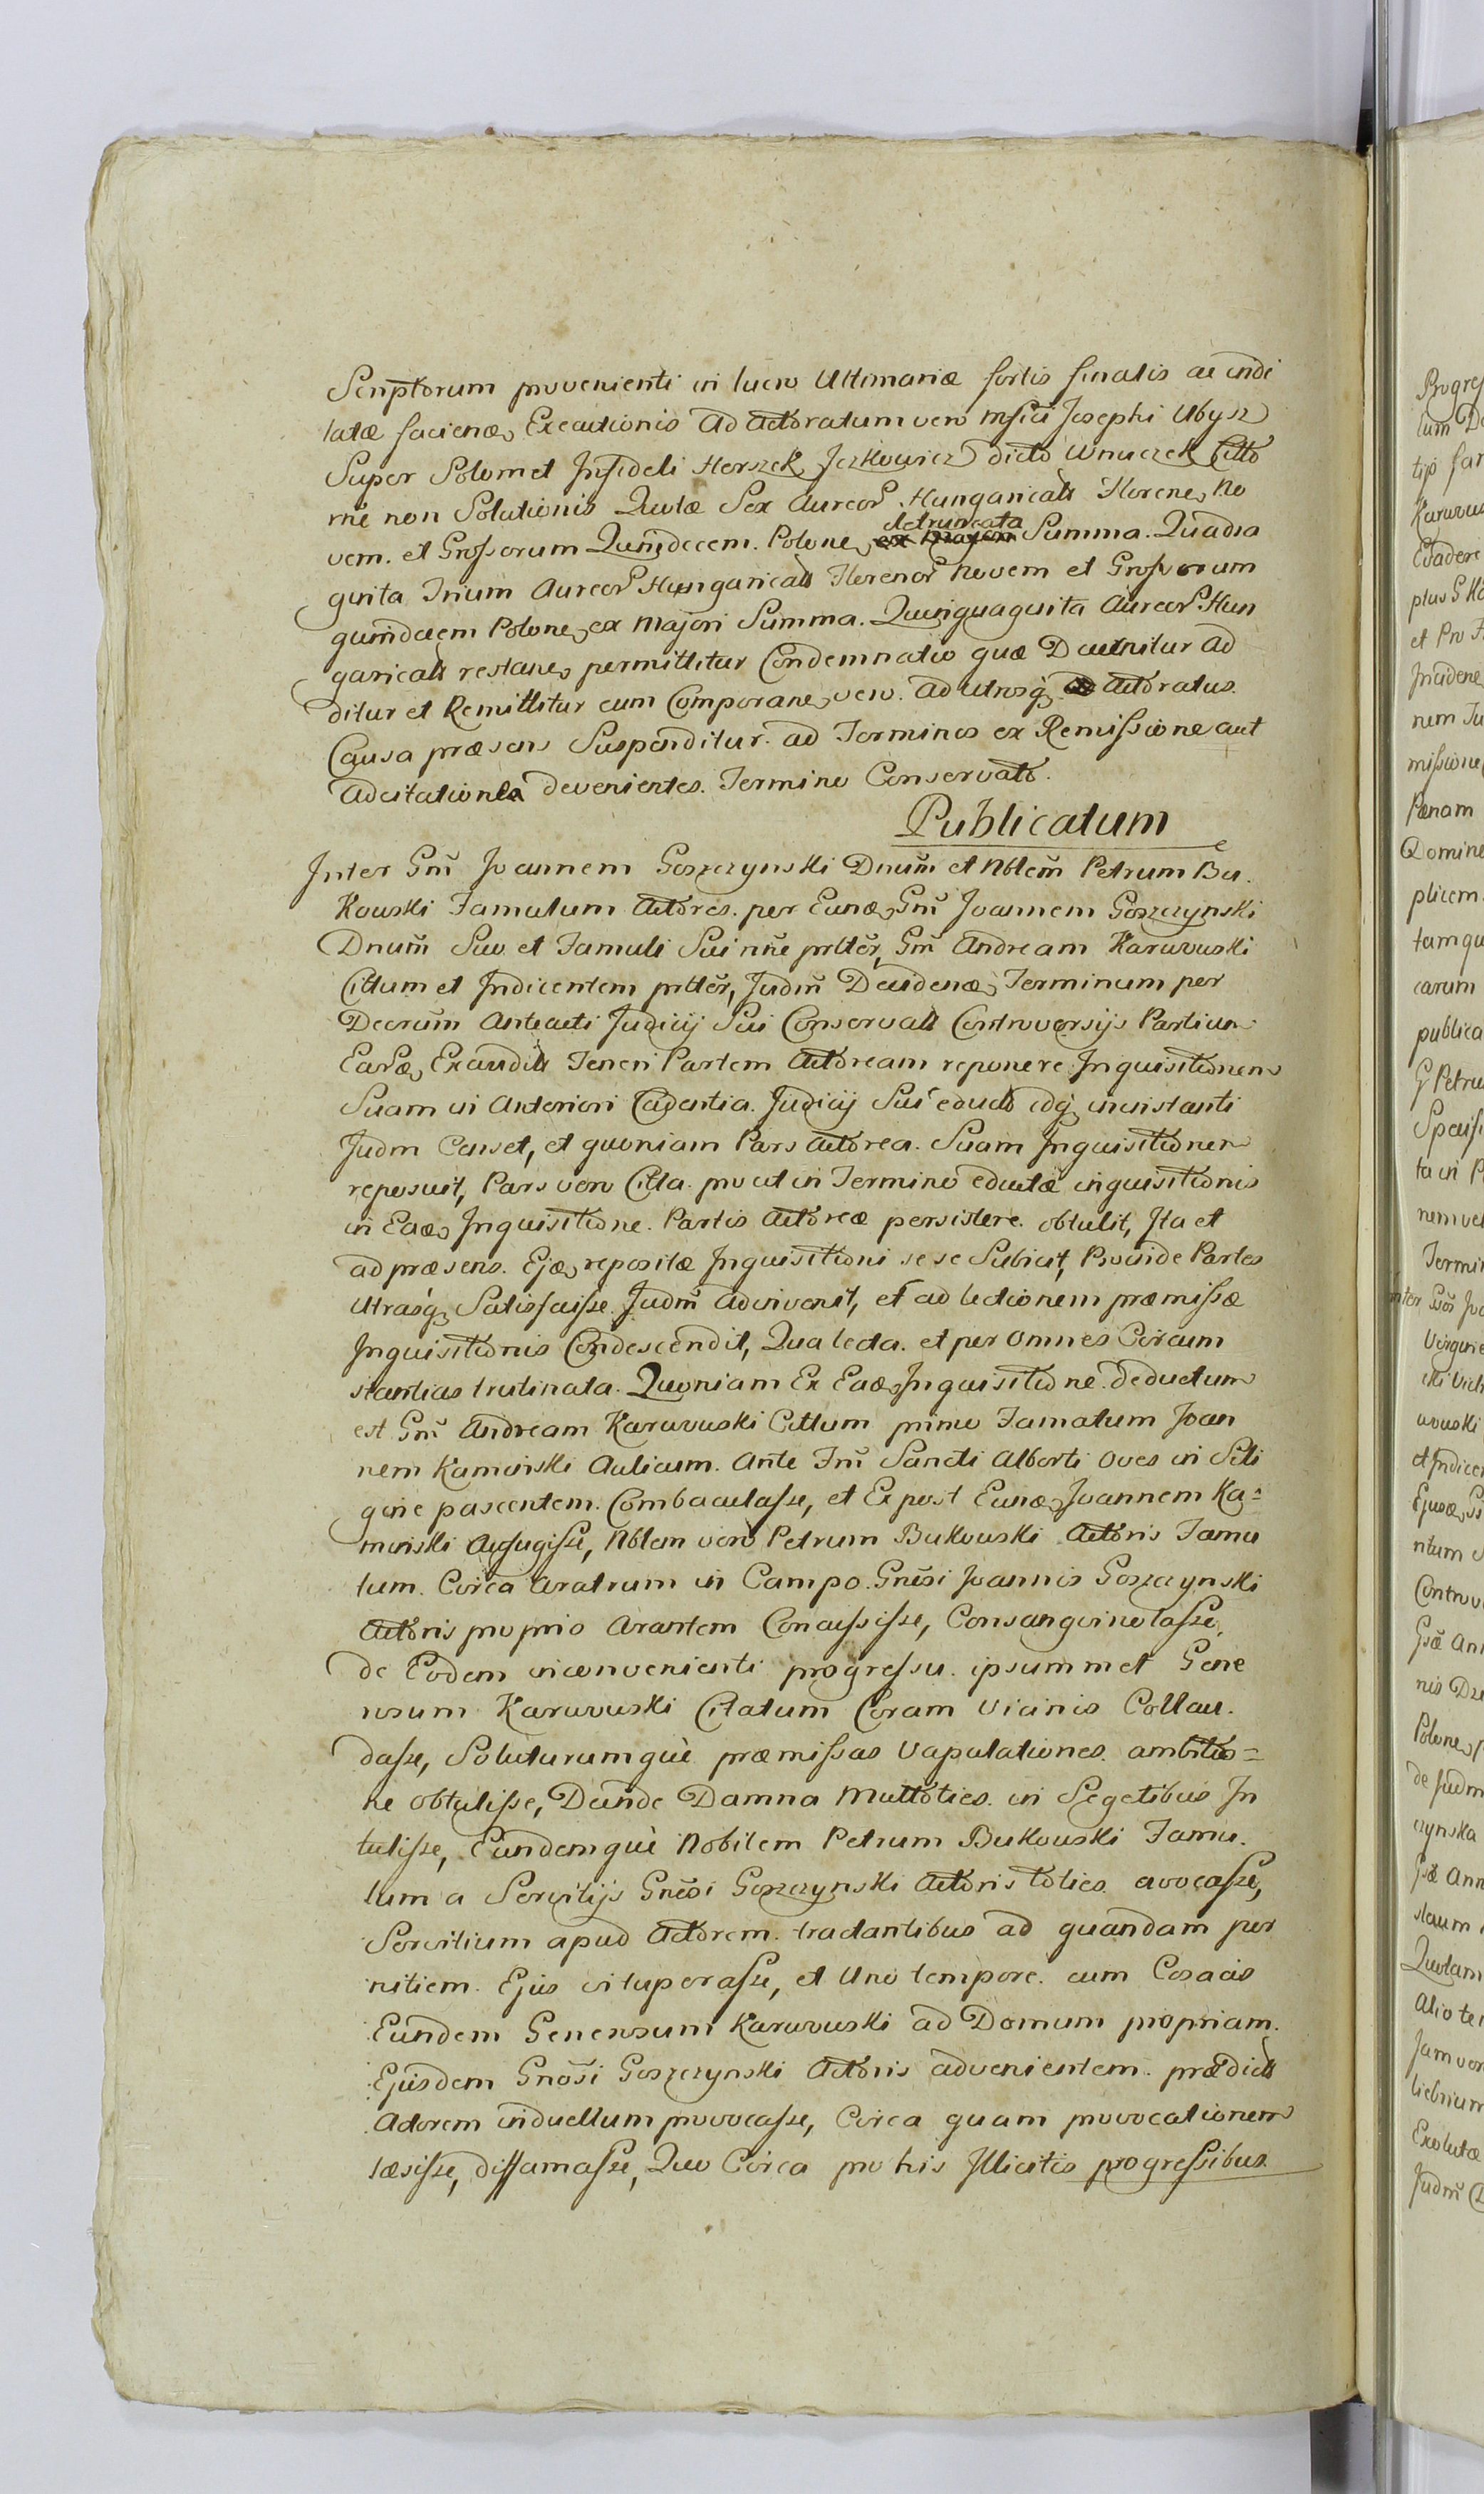 Scriptorum provenienti in lucro Ultimariæ fortis finalis ac indi
latæ faciend Executionis Ad Actoratum vero Mfici Josephi Ubysz
Super Solomet Infideli Herszek Jczkowicz dicto Wnuczek Citto
rne non Solutionis Quotæ Sex Aureor Hungaricali Florene No
vem. et Grossorum Quindecem. Polone detruncata Summa. Quadra
ginta Trium Aureor Hungaricali Florenor Novem et Grossorum
quindecem Polone ex Majori Summa. Quinquaginta Aureor Hun
garicali restane permittitur Condemnatio quæ Decernitur Ad
ditur et Remittitur cum Comporane vero. ad utrosq Actoratus.
Causa præsens Suspenditur. ad Terminos ex Remissione aut
Adcitatione devenientes. Termino Conservato.
Publicatum
Inter Gm̃ Joannem Goszczynski Dnum̃ et Nblem̃ Petrum Bu.
Kowski Famulum Actores. per Eund Gm̃ Joannem Goszczynski
Dnum̃ Suo et Famuli Sui nñe prltẽr, Gm̃ Andream Karwowski
Cittum et Indicentem prltẽr, Judm̃ Decidend Terminum per
Decrum̃ Anteacti Judicij Sui Conservali Controversijs Partium
Eard Exauditi Teneri Partem Actoream reponere Inquisitionem
Suam in Anteriori Cadentia. Judicij Sui educto idq in instanti
Judm Censet, et quoniam Pars Actorea. Suam Inquisitionem
reposuit, Pars vero Citta. prout in Termino eductæ inquisitionis
in Ead Inquisitione. Partis Actoreæ persistere. obtulit, Ita et
ad præsens. Ejd repositæ Inquisitioni sese Subicit, Proinde Partes
Utrasq Satisfaisse. Judm̃ Adinvenit, et ad lectionem præmissæ
Inquisitionis Condescendit, Qua lecta. et per omnes Circum
stantias trutinata. Quoniam Ex Ead Inquisitione. deductum
est Gm̃ Andream Karwowski Cittum primo Famulum Joan
nem Kaminski Aulicum. Ante Fm̃ Sancti Alberti oves in Sili
gine pascentem. Combaculasse, et Ex post Eund Joannem Ka=
minski Aufugisse, Nblem vero Petrum Bukowski Actoris Famu
lum. Circa Aratrum in Campo. Gnẽsi Joannis Goszczynski
Actoris proprio Arantem Concississe, Consanguinolasse,
de Eodem inconvenienti progressu. ipsummet Gene
rosum Karwowski Citatum Coram Vicinis Collau.
dasse, Soluturumque præmissas Vapulationes. ambitio=
ne obtulisse, Deinde Damna Multoties. in Segetibus In
tulisse, Eundemque Nobilem Petrum Bukowski Famu.
lum a Servitijs Gnẽsi Goszczynski Actoris toties avocasse,
Servitium apud Actorem. tractantibus ad quandam per
nitiem. Ejus vituperasse, et Uno tempore. cum Cosacis
Eundem Generosum Karwowski ad Domum propriam.
Ejusdem Gnõsi Goszczynski Actoris advenientem. prædicti
Actorem in duellum provocasse, Circa quam provocationem
læsisse, diffamasse, Quo Circa pro his Illicitis progressibus.